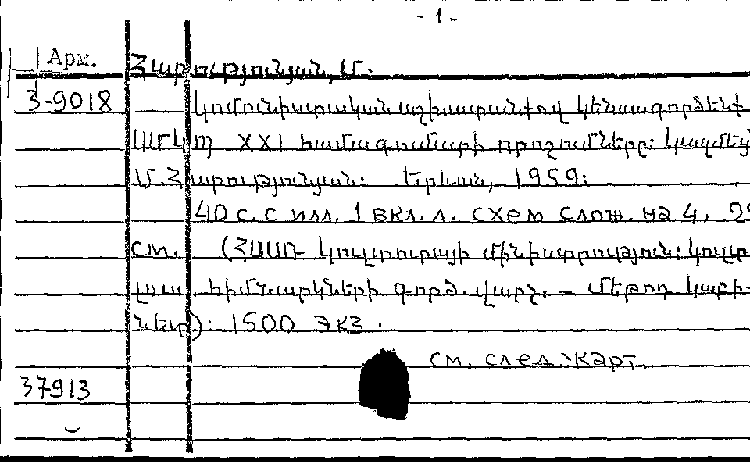 - 1 -
Арм. Հարությունյան, Մ.
3-9018 Կոմունիստական աշխատանքով կենսագործենք
ՍՄԿԿ XXI համագումարի որոշումները: Կազմեց
Մ. Հարությունյան: Երևան, 1959:
40 с. с илл. 1 вкл. л. схем слож. на 4, 29
см. (ՀՍՍՌ կուլտուրայի մինիստրություն: Կուլտ
լուս. հիմնարկների գործ. վարչ. – Մեթոդ կաբի-
նետ): 1500 экз.
см. след. карт.
37913